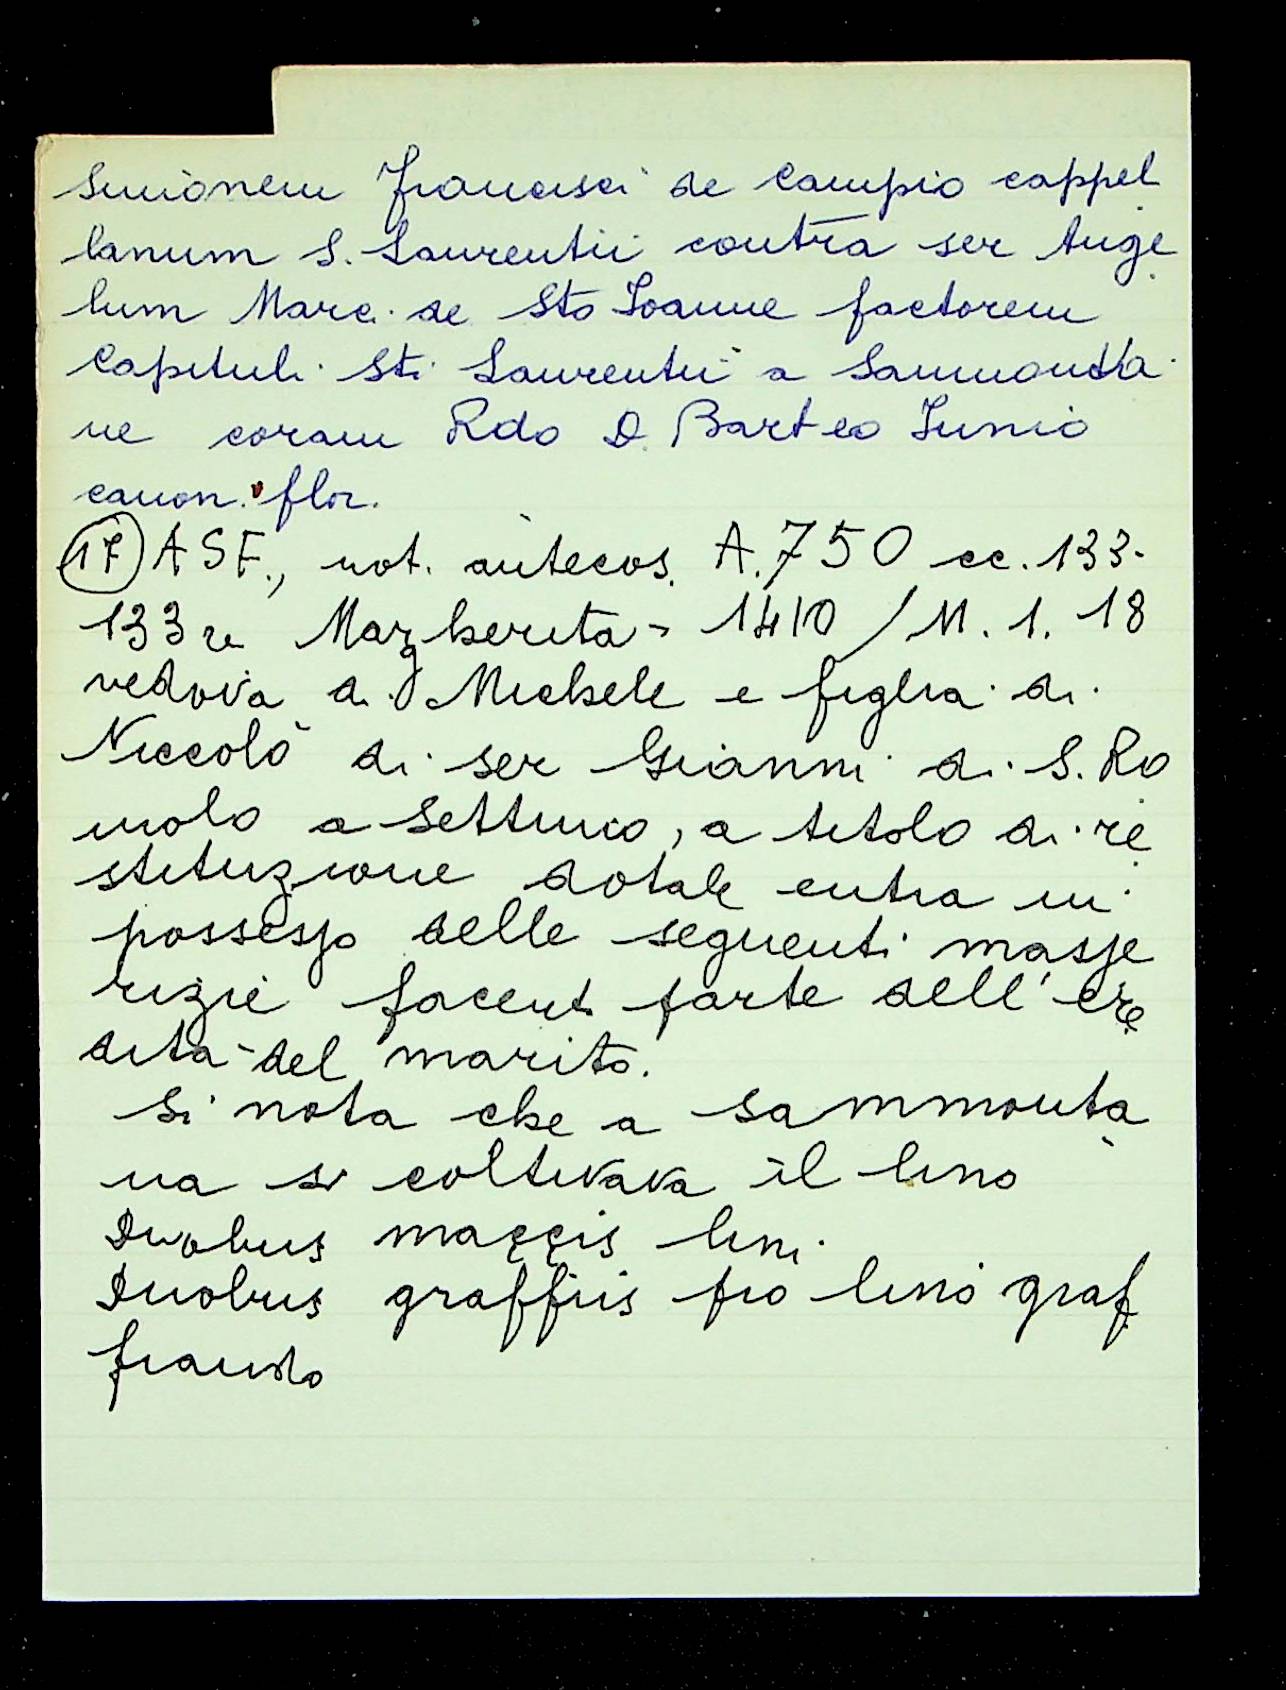 Simonem Francisci de Campio cappel
lanum S. Laurentii contra ser Ange
lum Marci de Sto Ioanne factorem
Capituli Sti Laurentii a Sammonta
ne coram Rdo D. Barteo Iunio
canon. flor.
17 ASF., not. antecos. A.750 cc. 133-
133v Margherita - 1410 / M. 1. 18
vedova di Michele e figlia di
Niccolò di ser Gianni di S. Ro
molo a Settimo, a titolo di re
stituzione dotale entra in
possesso delle seguenti masse
rizie facenti parte dell'ere
dità del marito.
Si nota che a Sammonta
na si coltivava il lino
Duobus maççis lini
Duobus graffiis pro lino graf
fiando